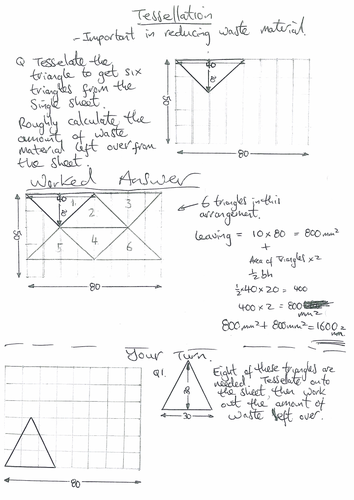 Tessellation
- Important in reducing waste material.
Q Tesselate the
triangle to get six
triangles from the
Single sheet.
Roughly calculate the
amount of waste
material left over from
the sheet.
40
50
80
Worked Answer
40
1.
2
3
4
5
6
50
80
6 triangles in this
arrangement.
leaving = 10 x 80 = 800mm²
+
Area of Triangles x 2
½bh
½ x 40 x 20 = 400
400 x 2 = 800
mm²
800mm² + 800mm² = 1600
Your Turn.
Q1.
30
Eight of these triangles are
needed. Tesselate onto
the sheet, then work
out the amount of
waste left over.
80